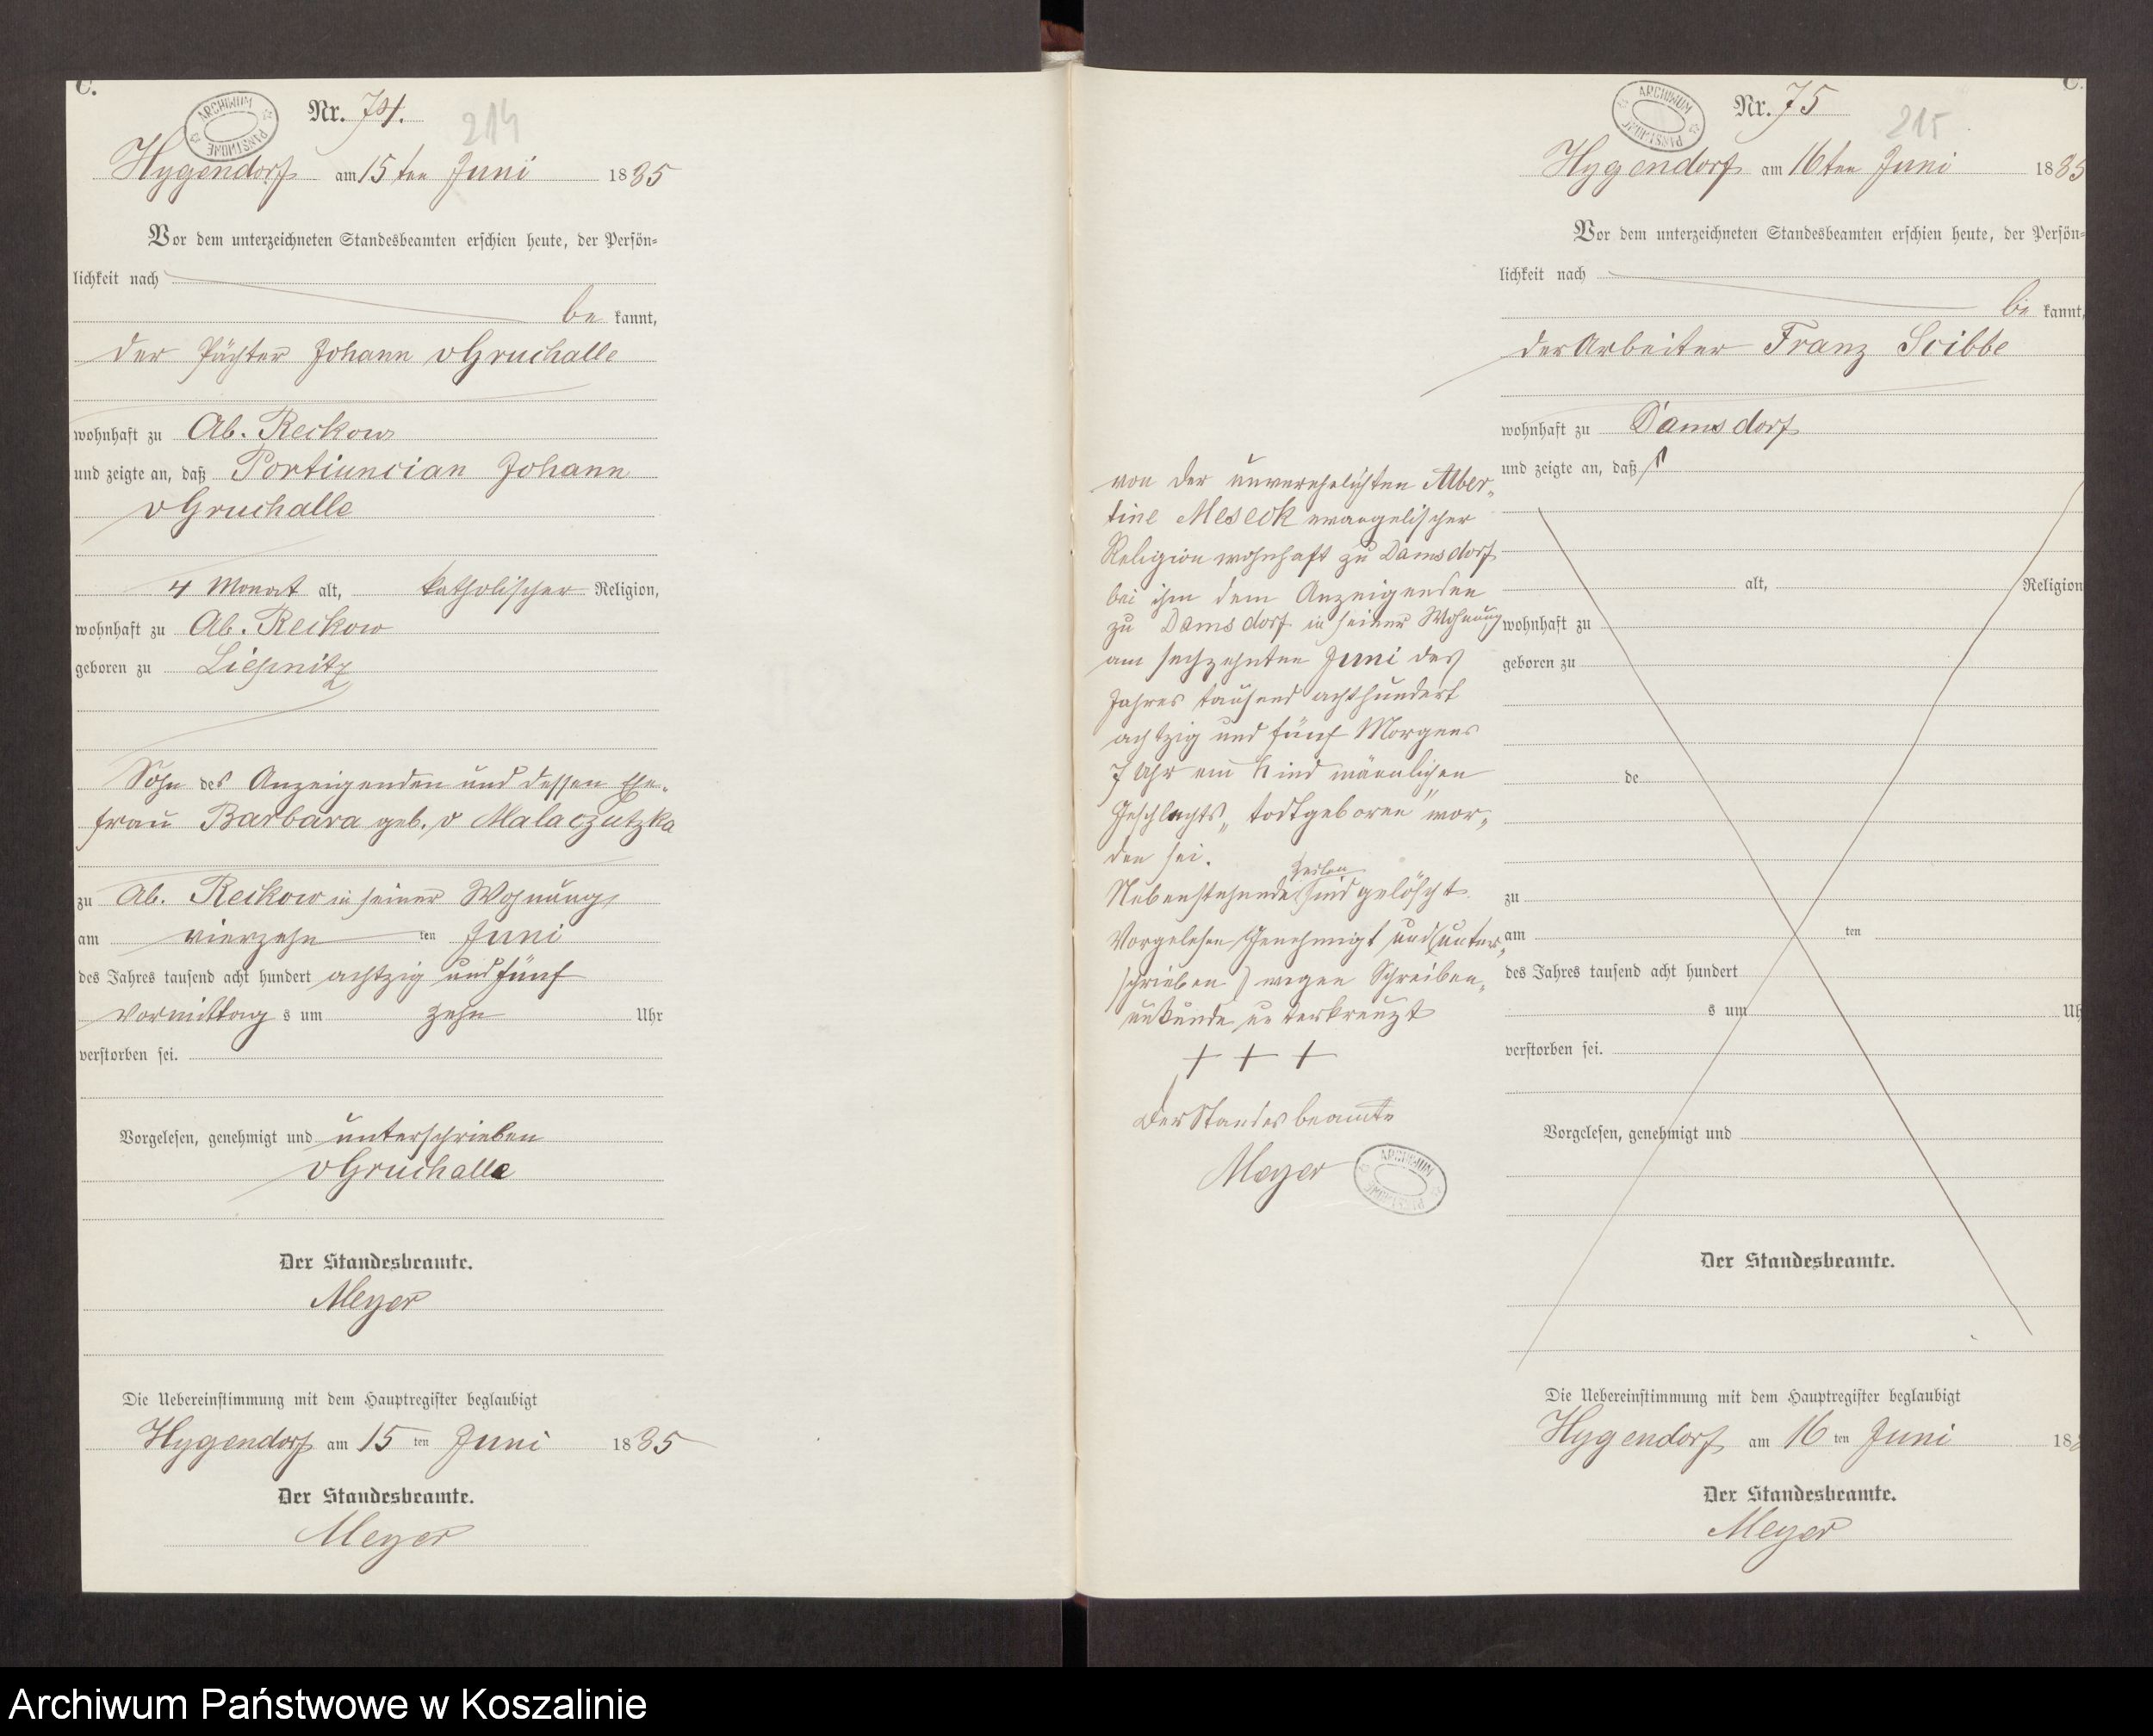 C.
Nr. 74.
214
ARCHIWUM PAŃSTWOWE
Hygendorf am 15ten Juni 1885
Vor dem unterzeichneten Standesbeamten erschien heute, der Persön-
lichkeit nach
be kannt,
der Pächter Johann v Gruchalle
wohnhaft zu Ab. Reckow
und zeigte an, daß Portiuncian Johann
v Gruchalle
4 Monat alt, katholischer Religion,
wohnhaft zu Ab. Reckow
geboren zu Ließnitz
Sohn des Anzeigenden und dessen Ehe-
frau Barbara geb. v Malaczutzka
zu Ab. Reckow in seiner Wohnung
am vierzehn ten Juni
des Jahres tausend acht hundert achtzig und fünf
Vormittag s um zehn Uhr
verstorben sei.
Vorgelesen, genehmigt und unterschrieben
v Gruchalla
Der Standesbeamte.
Meyer
Die Uebereinstimmung mit dem Hauptregister beglaubigt
Hygendorf am 15 ten Juni 1885
Der Standesbeamte.
Meyer
von der unverehelichten Alber-
tine Meseck evangelischer
Religion wohnhaft zu Damsdorf
bei ihm dem Anzeigenden
zu Damsdorf in seiner Wohnung
am sechzehnten Juni des
Jahres tausend achthundert
achtzig und fünf Morgens
7 Uhr ein Kind männlichen
Geschlechts „todtgeboren" wor-
den sei.
Zeilen
Nebenstehende sind gelöscht
Vorgelesen Genehmigt und (unter-
schrieben) wegen Schreiben-
unkunde unterkreuzt
+ + +
Der Standesbeamte
Meyer
ARCHIWUM PAŃSTWOWE
C.
Nr. 75
215
ARCHIWUM PAŃSTWOWE
Hygendorf am 16ten Juni 1885
Vor dem unterzeichneten Standesbeamten erschien heute, der Persön-
lichkeit nach
be kannt,
der Arbeiter Franz Scibbe
wohnhaft zu Damsdorf
und zeigte an, daß
alt, Religion
wohnhaft zu
geboren zu
de
zu
am ten
des Jahres tausend acht hundert
s um Uh
verstorben sei.
Vorgelesen, genehmigt und
Der Standesbeamte.
Die Uebereinstimmung mit dem Hauptregister beglaubigt
Hygendorf am 16 ten Juni 188
Der Standesbeamte.
Meyer
Archiwum Państwowe w Koszalinie